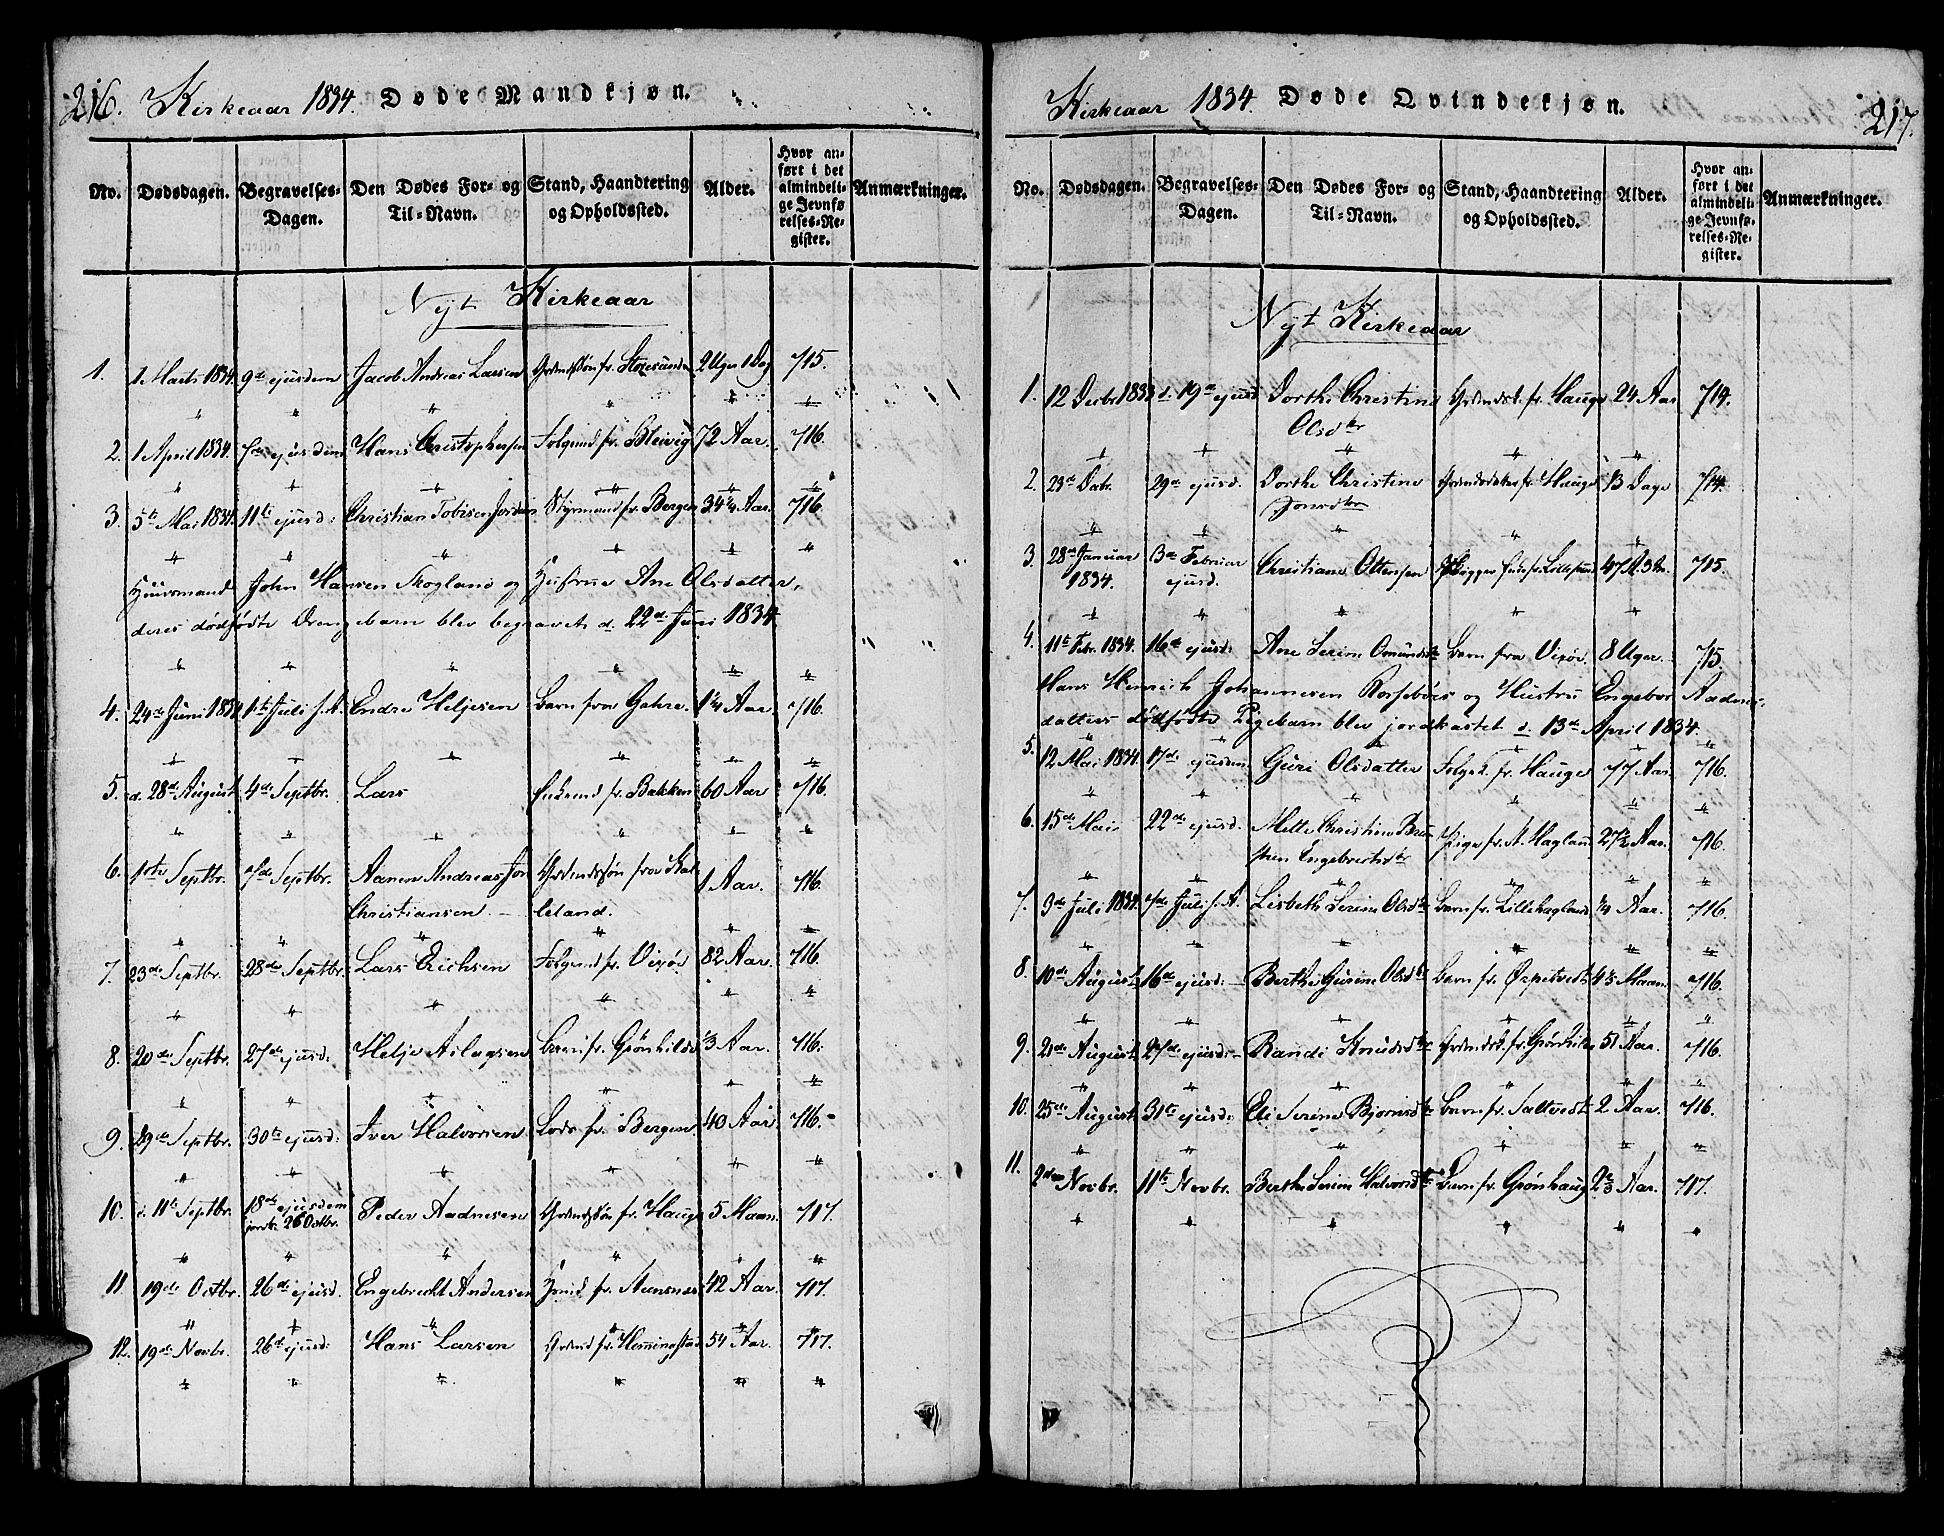 216. Kirkeaar 1834. Døde Mandkjøn.
No. Dødsdagen. Begravelses-Dagen. Den Dødes For- og Til-Navn. Stand, Haandtering og Opholdssted. Alder. Hvor anført i det almindelige Jevnførelses-Register. Anmærkninger.
Nyt Kirkeaar
1. 1 Marts 1834. 9de ejusdem Jacob Andreas Larsen Grdmdssøn fr. Storesund 2 Uger 1 Dag 715.
2. 1 April 1834. 7de ejusdem Hans Christophersen Folgemd fr. Bleivig 72 Aar. 716.
3. 5te Mai 1834. 11te ejusd: Christian Tobisen Styrmand fr. Bergen 34 1/4 Aar. 716.
Huusmand John Hansen Skogland og Hustrue Ane Olsdatter,
deres dødfødte Drengebarn blev begravet d. 22de Juni 1834.
4. 24de Juni 1834 1te Juli s. A. Endre Heljesen Barn fra 1 1/4 Aar. 716.
5. d. 28de August 4de Septbr. Lars Enkemd fr. Bakken 60 Aar 716.
6. 1ste Septbr. 7de Septbr. Aanen Andreas Grdmdssøn fra Kal- 1 Aar. 716.
Christiansen leland.
7. 23de Septbr. 28de Septbr. Lars Erichsen Folgemd fr. Vixø 82 Aar. 716.
8. 20de Septbr. 27de ejusd: Helje Aslagsen Barn fr. Grønhild 1/3 Aar. 716.
9. 29de Septbr. 30te ejusd: Iver Halvorsen Lods fr. Bergen. 40 Aar 716.
10. d. 11te Septbr. 18de ejusdem Peder Aadnesen Grdmdssøn fr. Hauge 5 Maan. 717.
26 Octbr.
11 19de Octbr. 26de ejusd. Engebrecht Andersen 42 Aar. 717.
12. 19de Novbr. 26de ejusd: Hans Larsen Grdmd fr. Hemmingstad 54 Aar. 717.
Kirkeaar 1834. Døde Qvindekjøn. 217.
No. Dødsdagen. Begravelses-Dagen. Den Dødes For- og Til-Navn. Stand, Haandtering og Opholdssted. Alder. Hvor anført i det almindelige Jevnførelses-Register. Anmærkninger.
Nyt Kirkeaar
1. 12 Decbr 1833 d. 19de ejusd Dorthe Christine Grdmdsk. fr. Hauge 24 Aar 714.
Olsdtr
2. 23de Dcbr. 29de ejusd. Dorthe Christine fr. Hauge 13 Dage 714.
Jonsdtr
3. 28de Januar 3de Februar Christiane Ottensen fr. Lillesund 47 A. 715.
1834. ejusd.
4. 11te Febr. 1834. 16de ejusd: Ane Serine Omundsdtr Barn fra Vixø 8 Uger. 715.
Hans Henrich Johannesen og Hustru Engebor Aadens-
datters dødfødte Pigebarn blev jordkastet d. 13de April 1834.
5. 12 Mai 1834. 17de ejusdem Guri Olsdatter Folgek. fr. Hauge 77 Aar. 716.
6. 15de Mai 22de ejusd. Mette Christine Pige fr. 27 1/2 Aar. 716.
Engebretsdtr
7. 3de Juli 1834. 7de Juli s. A. Lisbeth Serine Olsdtr Barn fr. Lillehagland 1/4 Aar. 716.
8. 10de August 16de ejusd: Berthe Gurine Olsdtr Barn fr. Ørpetvedt Maan. 716.
9. 21de August 27de ejusd: Randi Knudsdtr Grdmdsk. fr. Grønhild 51 Aar. 716.
10. 25de August 31te ejusd: Eli Serine Bjørnsdtr Barn fr. Saltvedt 2 Aar. 716.
11. 2den Novbr. 11te Novbr. Berthe Serine Halvorsdtr Barn fr. Grønhaug 2 2/3 Aar. 717.